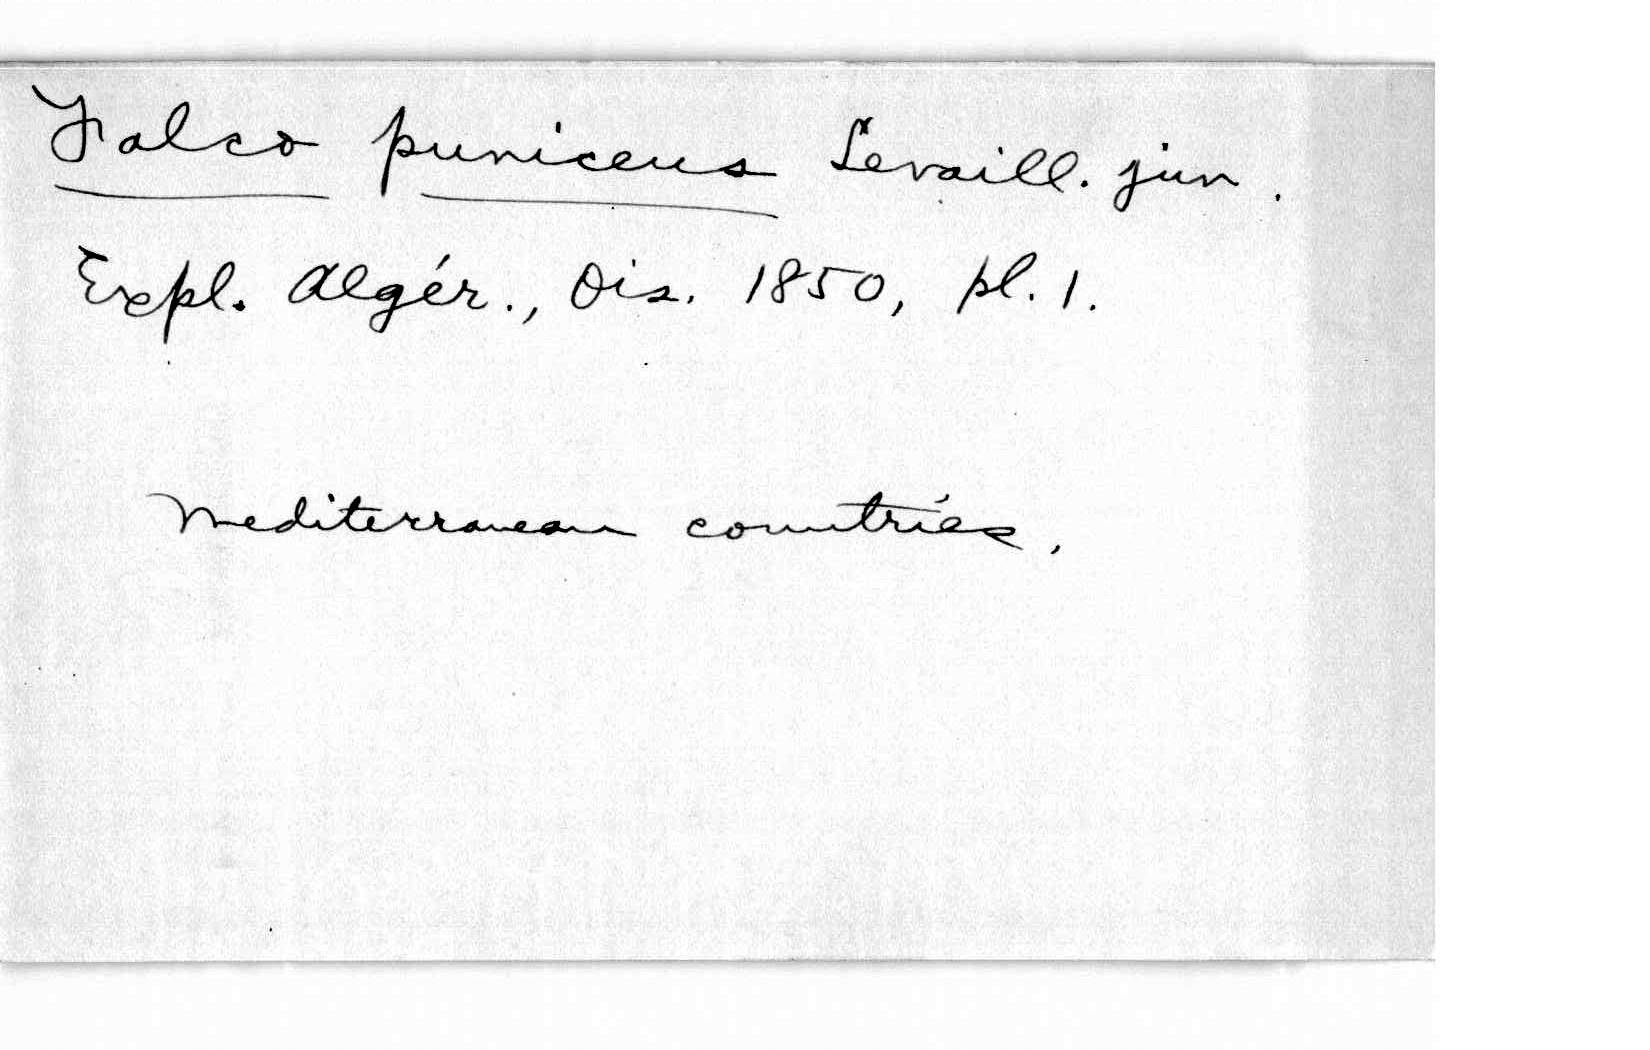 Falco puniceus Levaill. jun.
Expl. Algér., Ois. 1850, pl. 1.
Mediterranean countries.